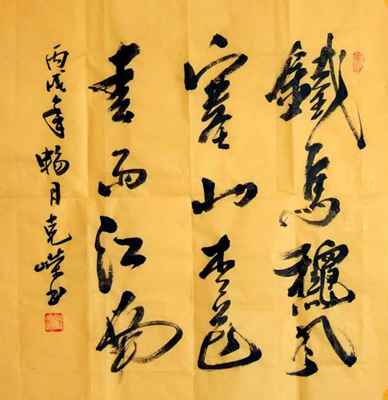 鐵馬龝風
塞山杏花
春雨江南
丙戌年暢月克书